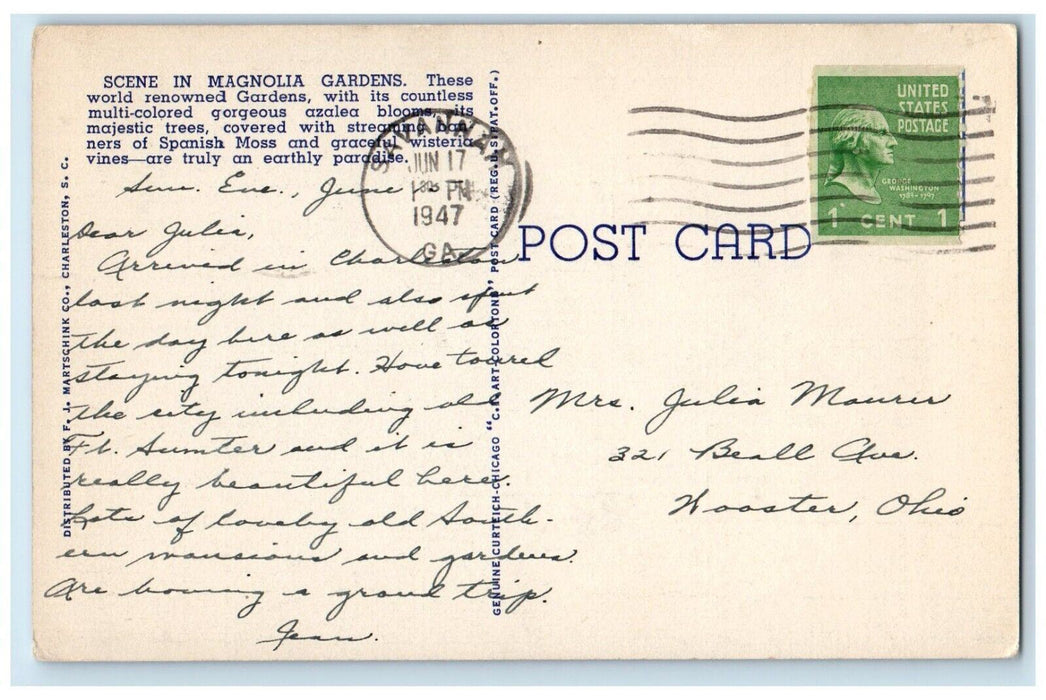 SCENE IN MAGNOLIA GARDENS. These
world renowned Gardens, with its countless
multi-colored gorgeous azalea blooms, its
majestic trees, covered with streaming ban-
ners of Spanish Moss and graceful wisteria
vines—are truly an earthly paradise.
Sun. Eve., June
Dear Julia,
Arrived in Charleston
last night and also spent
the day here as well as
staying tonight. Have toured
the city including old
Ft. Sumter and it is
really beautiful here.
Lots of lovely old South-
ern mansions and gardens.
Are having a grand trip.
Jean.
DISTRIBUTED BY F. J. MARTSCHINK CO., CHARLESTON, S. C.
GENUINE CURTEICH-CHICAGO "C.T. ART-COLORTONE" POST CARD (REG. U.S. PAT. OFF.)
SAVANNAH
JUN 17
PM
1947
GA.
POST CARD
UNITED
STATES
POSTAGE
GEORGE
WASHINGTON
1789-1797
1 CENT 1
Mrs. Julia Maurer
321 Beall Ave.
Wooster, Ohio